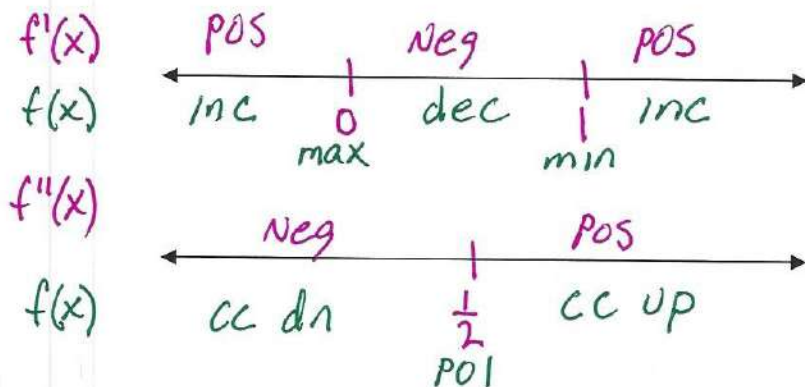 f'(x) POS Neg POS
f(x) inc 0 dec 1 inc
max min
f"(x)
Neg POS
f(x) cc dn 1/2 cc up
POI